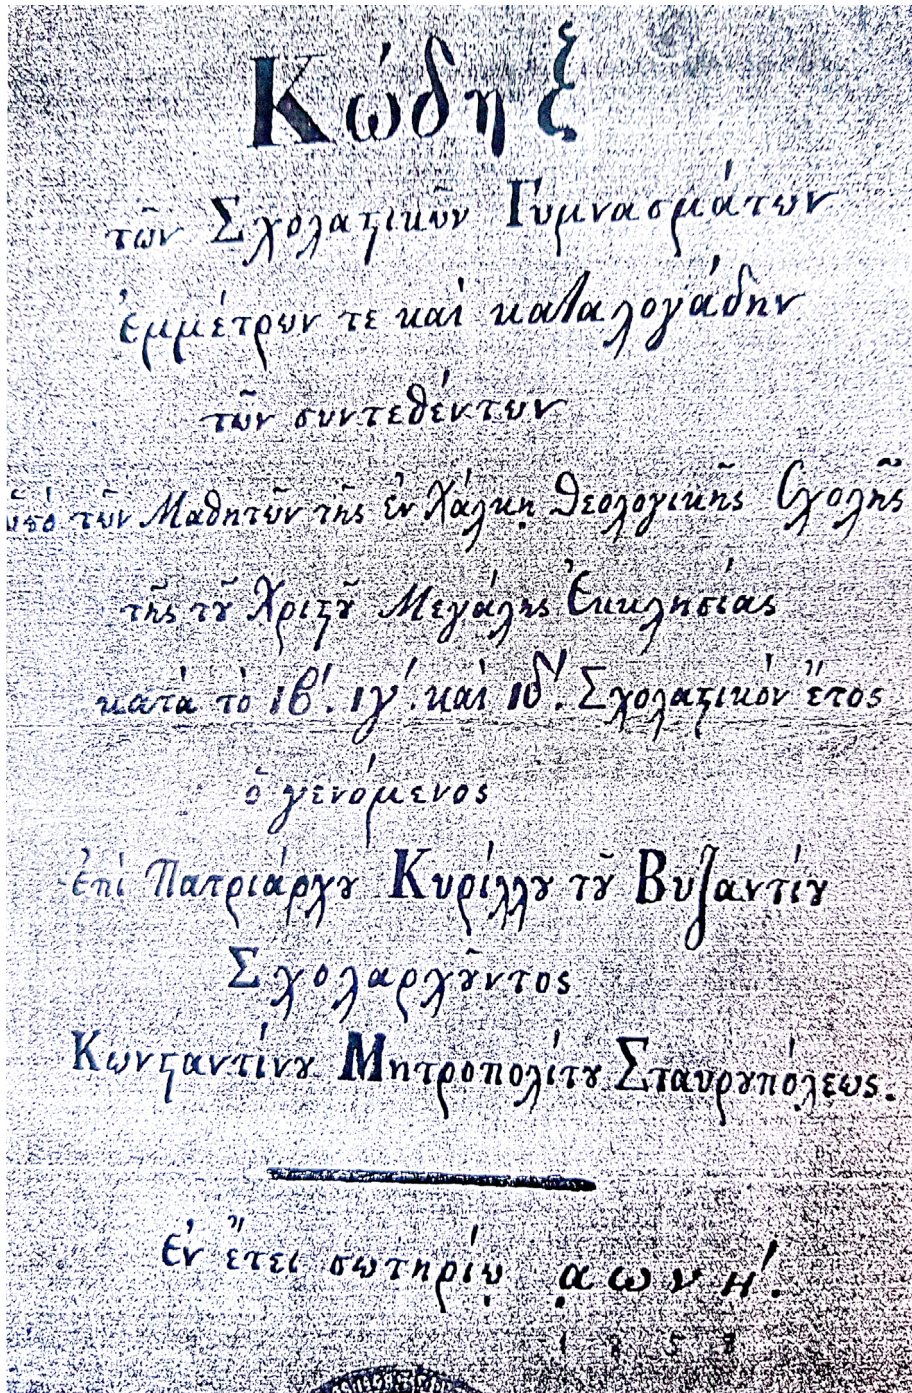 Κώδηξ
τῶν Σχολαϛικῶν Γυμνασμάτων
ἐμμέτρων τε καὶ καταλογάδην
τῶν συντεθέντων
ὑπὸ τῶν Μαθητῶν τῆς ἐν Χάλκῃ Θεολογικῆς Σχολῆς
τῆς τȣ͂ Χριϛȣ͂ Μεγάλης Ἐκκλησίας
κατὰ τὸ ιβ΄. ιγ΄. καὶ ιδ΄. Σχολαϛικὸν ἔτος
ὁ γενόμενος
ἐπὶ Πατριάρχȣ Κυρίλλȣ τȣ͂ Βυζαντίȣ
Σχολαρχȣ͂ντος
Κωνϛαντίνȣ Μητροπολίτȣ Σταυρȣπόλεως.
ἐν ἔτει σωτηρίῳ ͵αωνη΄.
1858